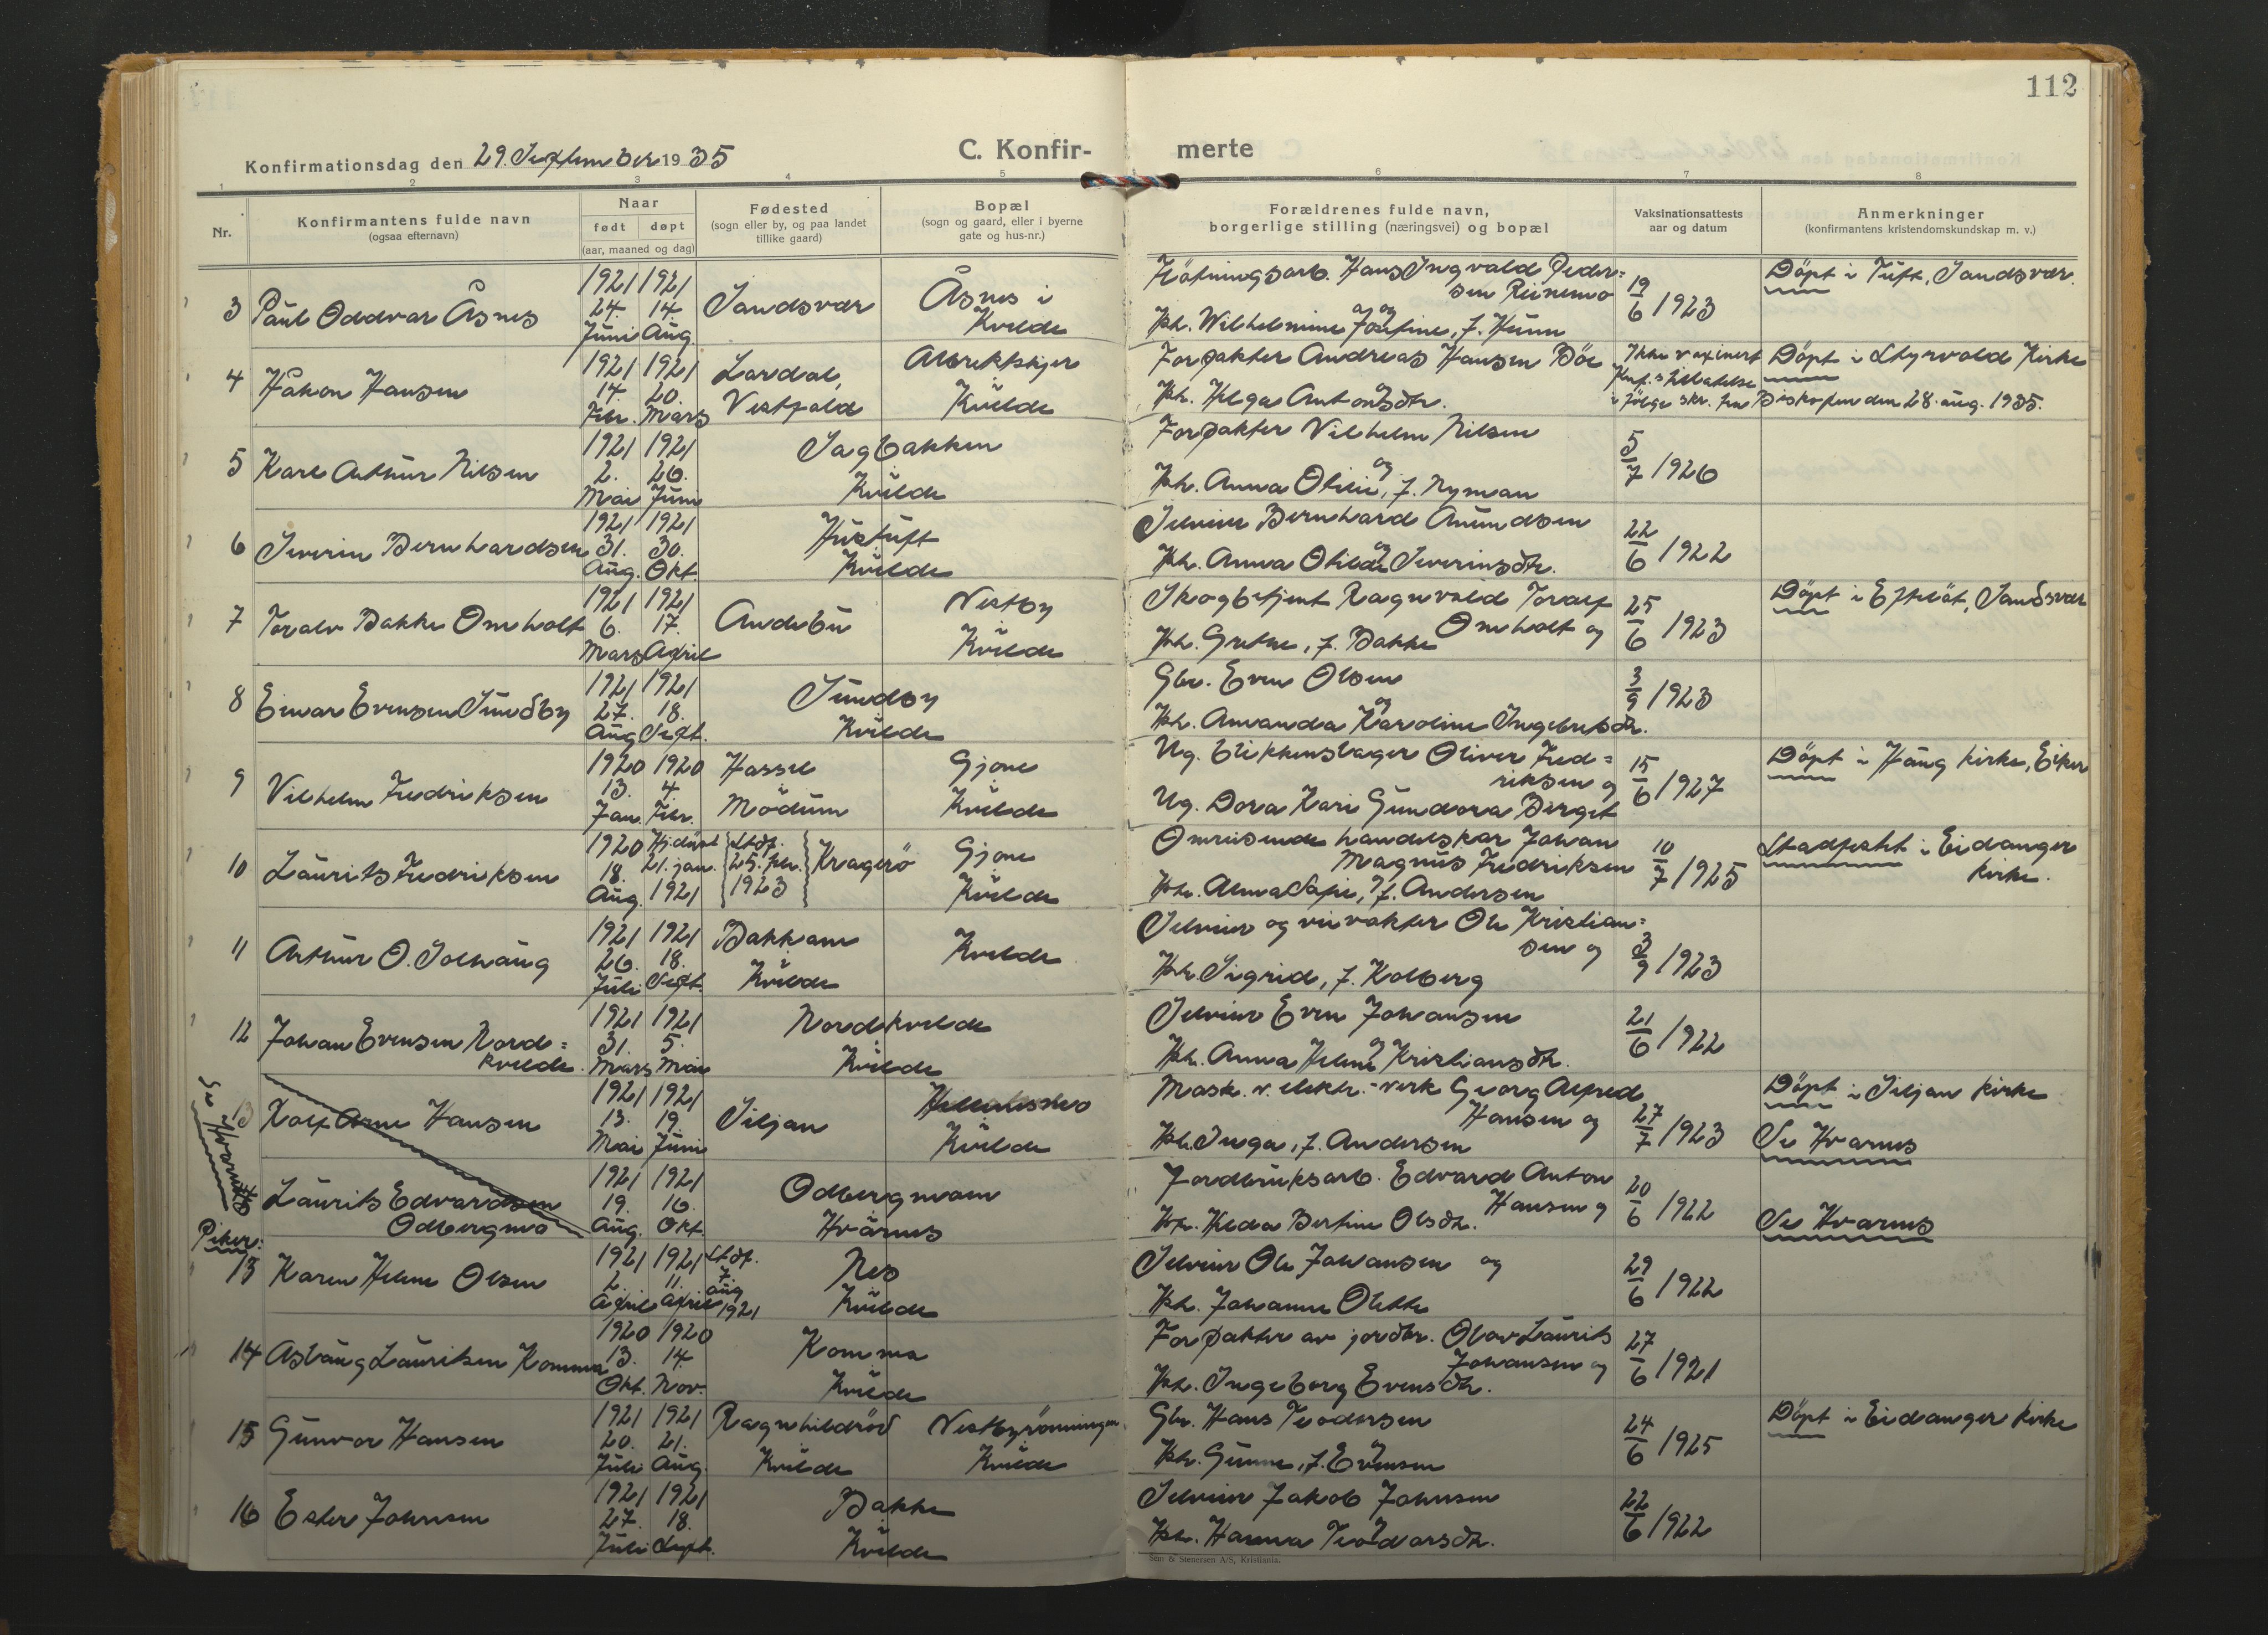 112
Konfirmationsdag den 29. September 1935
C. Konfir- merte
1 2 3 4 5 6 7 8
Nr.
Konfirmantens fulde navn
(ogsaa efternavn)
Naar
født døpt
(aar, maaned og dag)
Fødested
(sogn eller by, og paa landet
tillike gaard)
Bopæl
(sogn og gaard, eller i byerne
gate og hus-nr.)
Forældrenes fulde navn,
borgerlige stilling (næringsvei) og bopæl
Vaksinationsattests
aar og datum
Anmerkninger
(konfirmantens kristendomskundskap m. v.)
3 Paul Oddvar Åsnes
1921 24. Juni
1921 14. Aug.
Sandsvær
Åsnes i
Kvelde
Hans Ingvald Peder=
sen Reinemo og
Kh. Wilhelmine Josefine, f. Hunn
19/6 1923
Döpt i Tuft, Sandsvær.
4 Håkon Hansen
1921 14. Febr.
1921 20. Mars
Lardal,
Vestfold
Albrektskjer
Kvelde
Forpakter Andreas Hansen Böe
og
Kh. Helga Antonsdtr.
Ikke vaxinert
Konf. s tillatelse
i følge skr. fra Biskopen den 28. aug. 1935.
Döpt i Styrvold Kirke
5 Karl Arthur Nilsen
1921 2. Mai
1921 26. Juni
Sagbakken
Kvelde
Forpakter Vilhelm Nilsen
og
Kh. Anna Otilie, f. Nyman
5/7 1926
6 Severin Bernhardsen
1921 31. Aug.
1921 30. Okt.
Hustuft
Kvelde
Selveier Bernhard Amundsen
og
Kh. Anna Otilde Severinsdtr.
22/6 1922
7 Toralv Bakke Omholt
1921 6. Mars
1921 17. April
Andebu
Vestby
Kvelde
Skogbetjent Ragnvald Toralf
Omholt og
Kh. Grethe, f. Bakke
25/6 1923
Döpt i Efteløt, Sandsvær
8 Einar Evensen Sundby
1921 27. Aug.
1921 18. Sept.
Sundby
Kvelde
Gbr. Even Olsen
og
Kh. Amanda Karoline Ingebretsdtr.
3/9 1923
9 Vilhelm Fredriksen
1920 13. Jan.
1920 4. Febr.
Hassel
Modum
Gjone
Kvelde
Ug. blikkenslager Oliver Fred=
riksen og
Ug. Dora Kari Gundora Berget
15/6 1927
Döpt i Haug kirke, Eiker
10 Laurits Fredriksen
1920 18. Aug.
Hj. döpt 21. jan. 1921
Stdf. 25. febr. 1923
Kragerö
Gjone
Kvelde
Omreisende handelskar Johan
Magnus Fredriksen
og
Kh. Alma Sofie, f. Andersen
10/7 1925
Stadfestet i Eidanger
Kirke.
11 Arthur O. Solhaug
1921 26. Juli
1921 18. Sept.
Bakkane
Kvelde
Kvelde
Selveier og veivokter Ole Kristian=
sen og
Kh. Sigrid, f. Kolberg
3/9 1923
12 Johan Evensen Nord=
kvelde.
1921 31. Mars
1921 5. Mai
Nordkvelde
Kvelde
Selveier Even Johansen
og
Kh. Anna Helene Kristiansdtr.
21/6 1922
Se Hvarnes
13 Rolf Arne Hansen
1921 13. Mai
1921 19. Juni
Siljan
Kvelde
Mask. v. elektr.-verk Georg Alfred
Hansen og
Kh. Inga, f. Andersen
27/7 1923
Döpt i Siljan kirke
Se Hvarnes
Laurits Edvardsen
Odbergmo
1921 19. Aug.
1921 16. Okt.
Odbergmoen
Hvarnes
Jordbruksarb. Edvard Anton
Hansen og
Kh. Hilda Bertine Olsdtr.
20/6 1922
Se Hvarnes
Piker:
13 Karen Helene Olsen
1921 2. April
1921 11. April
Stdf. 7. aug 1921
Nes
Kvelde
Selveier Ole Johansen og
Kh. Johanne Olette
29/6 1922
14 Aslaug Lauritsen Komma
1920 13. Okt.
1920 14. Nov.
Komma
Kvelde
Forpakter av jordbr. Olav Laurits
Johansen og
Kh. Ingeborg Evensdtr.
27/6 1921
15 Gunvor Hansen
1921 20. Juli
1921 21. Aug.
Ragnhildröd
Kvelde
Vestbyrönningen
Kvelde
Gbr. Hans Teodorsen
og
Kh. Gunne, f. Evensen
24/6 1925
Döpt i Eidanger kirke
16 Ester Johnsen
1921 27. Juli
1921 18. Sept.
Bakke
Kvelde
Selveier Jakob Johnsen
og
Kh. Hanna Teodorsdtr.
22/6 1922
Sem & Stenersen A/S, Kristiania.